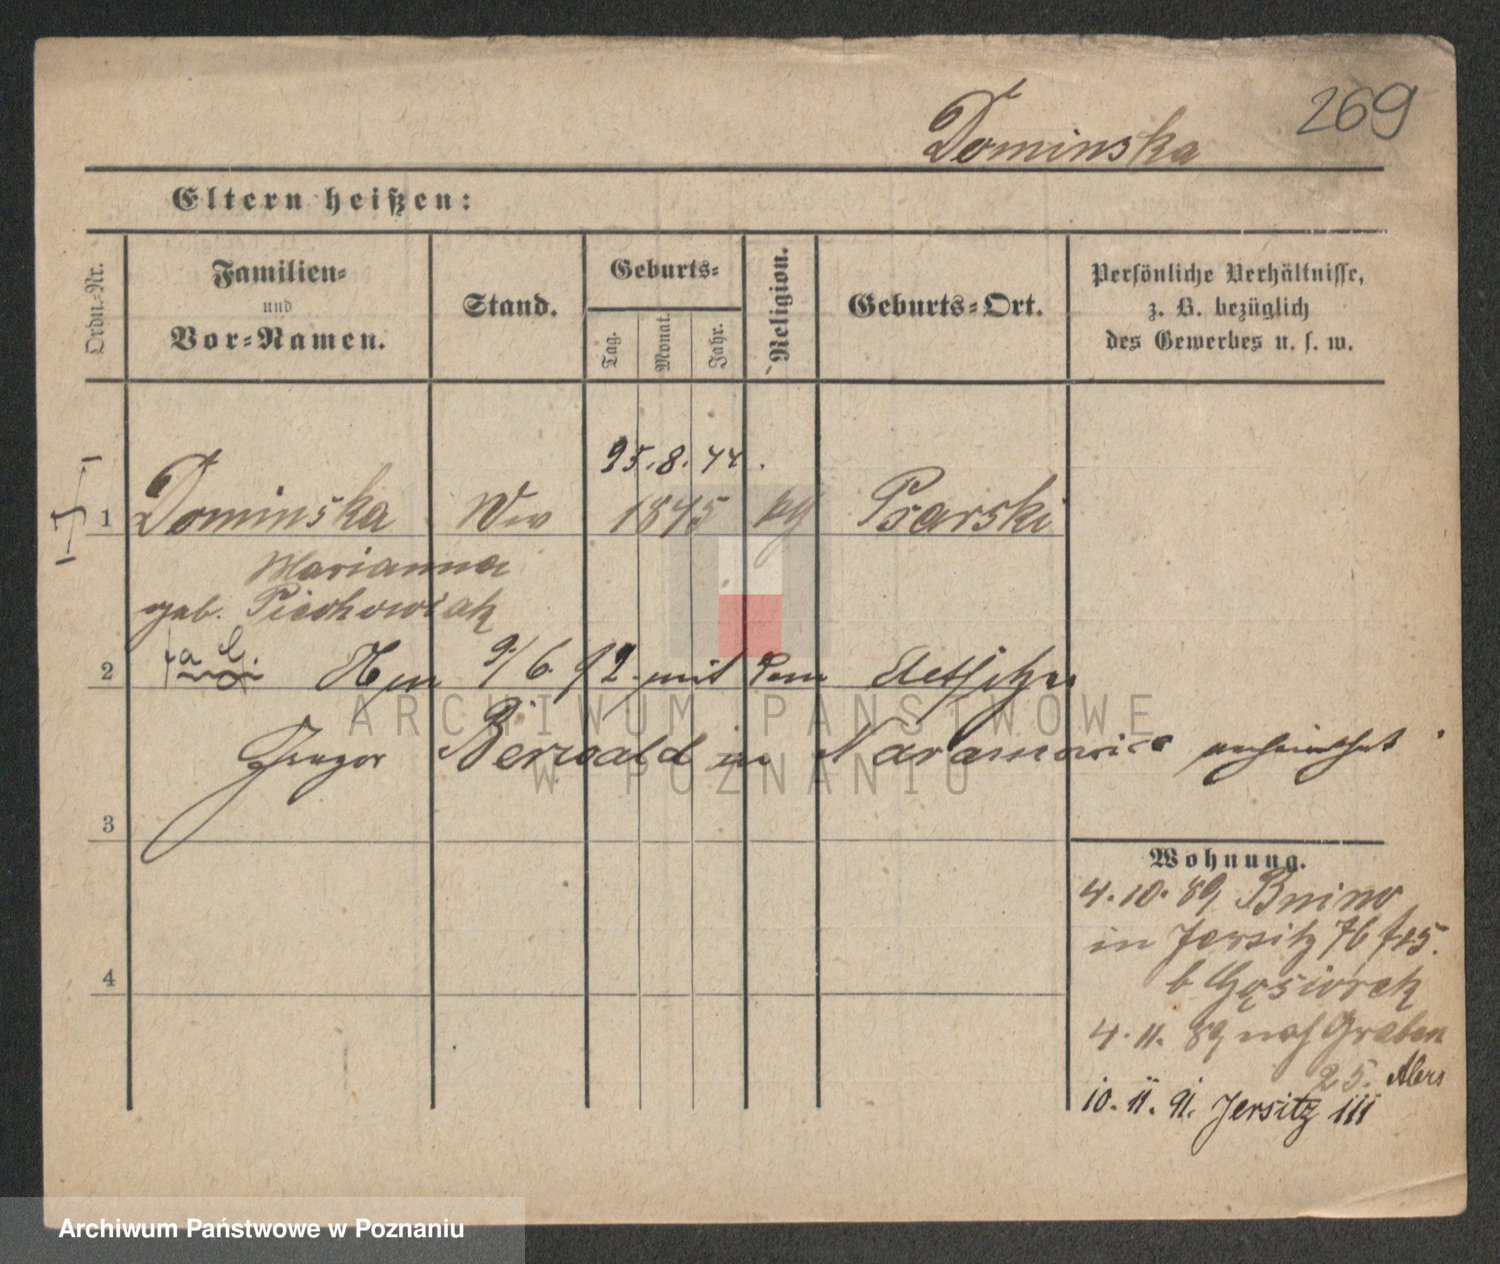 269
Dominska
Eltern heißen:
Ordn.-Nr.
Familien-
und
Vor-Namen.
Stand.
Geburts-
Tag.
Monat.
Jahr.
Religion.
Geburts-Ort.
Persönliche Verhältnisse,
z. B. bezüglich
des Gewerbes u. s. w.
25. 8. 44.
1 Dominska Ww 1845 kg Psarski
Marianna
geb. Piechowiak
2 9/6. 92. mit dem
Gregor Berwald in Naramowice verheirathet.
3
4
Wohnung.
4. 10. 89 Bnin
in Jersitz 76
b Gąsiorek
4. 11. 89 nach Graben
25.
10. 11. 91. Jersitz 111
ARCHIWUM PAŃSTWOWE
W POZNANIU
Archiwum Państwowe w Poznaniu